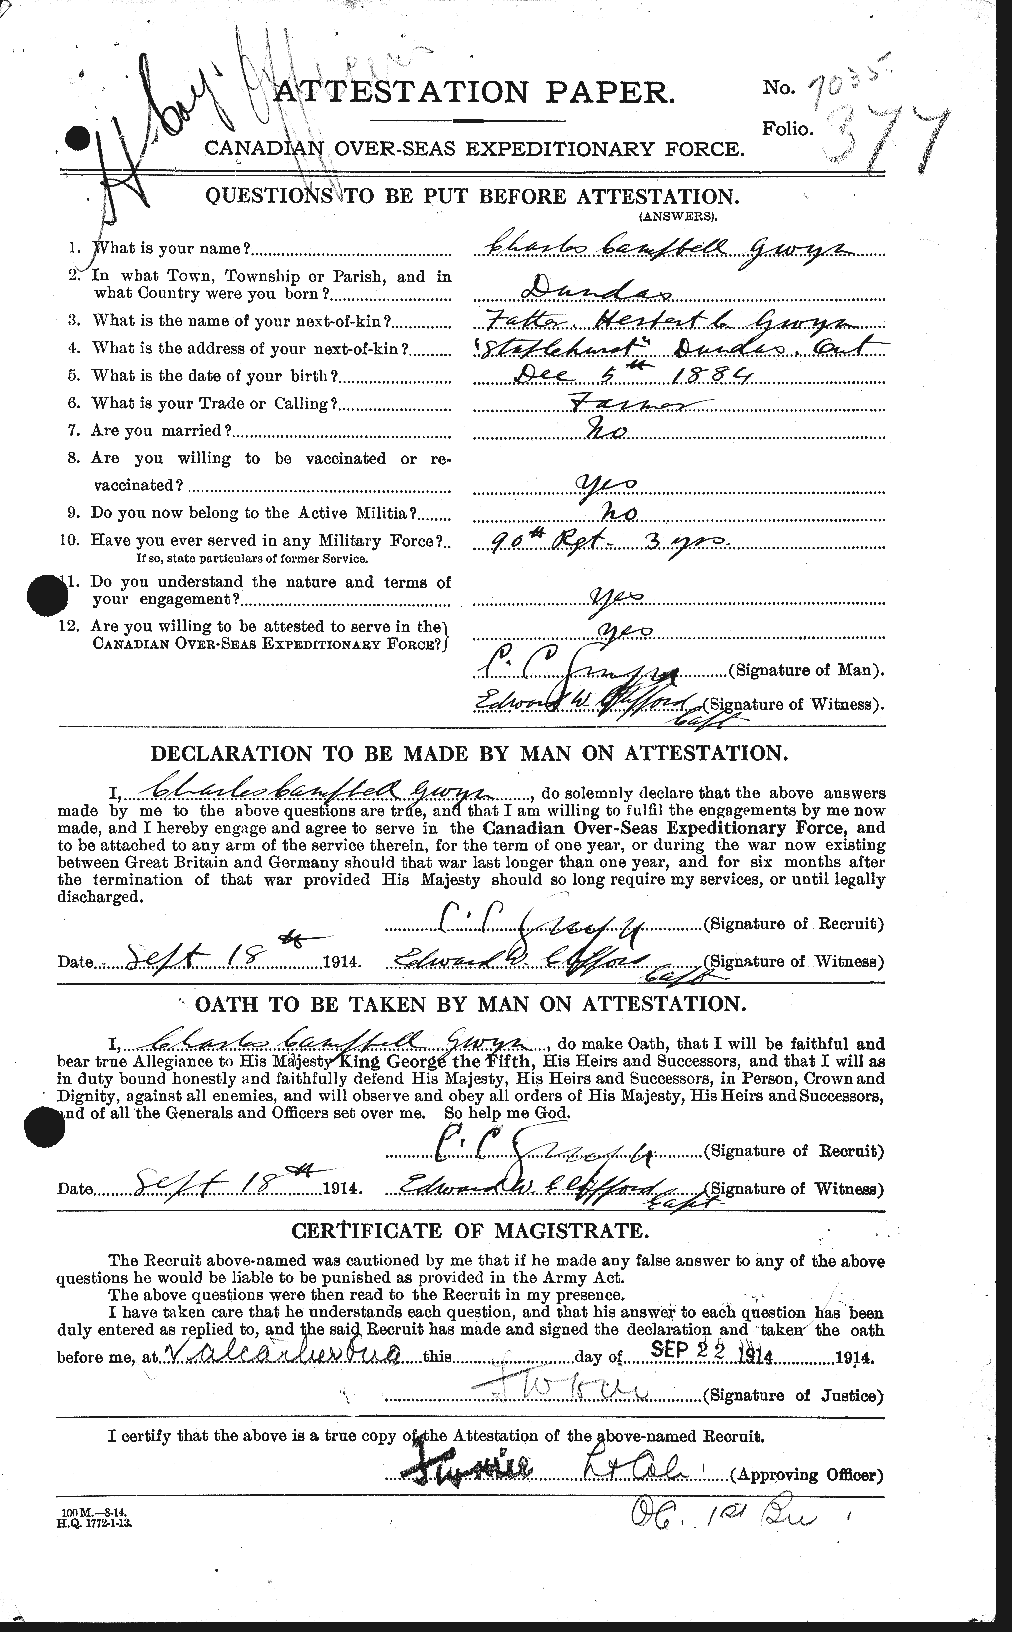 H Coy. Officer
ATTESTATION PAPER.
No. 7035
Folio. 377
CANADIAN OVER-SEAS EXPEDITIONARY FORCE.
QUESTIONS TO BE PUT BEFORE ATTESTATION.
(ANSWERS).
1. What is your name? Charles Campbell Gwyn
2. In what Town, Township or Parish, and in
what Country were you born? Dundas
3. What is the name of your next-of-kin? Father. Herbert C Gwyn
4. What is the address of your next-of-kin? "Staplehurst" Dundas. Ont
5. What is the date of your birth? Dec 5th 1884
6. What is your Trade or Calling? Farmer
7. Are you married? No
8. Are you willing to be vaccinated or re-
vaccinated? Yes
9. Do you now belong to the Active Militia? No
10. Have you ever served in any Military Force? 90th Rgt. 3 yrs.
If so, state particulars of former Service.
11. Do you understand the nature and terms of
your engagement? Yes
12. Are you willing to be attested to serve in the
CANADIAN OVER-SEAS EXPEDITIONARY FORCE? Yes
C. C. Gwyn (Signature of Man).
Edward W. Clifford Capt (Signature of Witness).
DECLARATION TO BE MADE BY MAN ON ATTESTATION.
I, Charles Campbell Gwyn, do solemnly declare that the above answers
made by me to the above questions are true, and that I am willing to fulfil the engagements by me now
made, and I hereby engage and agree to serve in the Canadian Over-Seas Expeditionary Force, and
to be attached to any arm of the service therein, for the term of one year, or during the war now existing
between Great Britain and Germany should that war last longer than one year, and for six months after
the termination of that war provided His Majesty should so long require my services, or until legally
discharged.
C. C. Gwyn (Signature of Recruit)
Date Sept 18th 1914. Edward W. Clifford Capt (Signature of Witness)
OATH TO BE TAKEN BY MAN ON ATTESTATION.
I, Charles Campbell Gwyn, do make Oath, that I will be faithful and
bear true Allegiance to His Majesty King George the Fifth, His Heirs and Successors, and that I will as
in duty bound honestly and faithfully defend His Majesty, His Heirs and Successors, in Person, Crown and
Dignity, against all enemies, and will observe and obey all orders of His Majesty, His Heirs and Successors,
and of all the Generals and Officers set over me. So help me God.
C. C. Gwyn (Signature of Recruit)
Date Sept 18th 1914. Edward W. Clifford Capt (Signature of Witness)
CERTIFICATE OF MAGISTRATE.
The Recruit above-named was cautioned by me that if he made any false answer to any of the above
questions he would be liable to be punished as provided in the Army Act.
The above questions were then read to the Recruit in my presence.
I have taken care that he understands each question, and that his answer to each question has been
duly entered as replied to, and the said Recruit has made and signed the declaration and taken the oath
before me, at Valcartier this day of SEP 22 1914 1914.
(Signature of Justice)
I certify that the above is a true copy of the Attestation of the above-named Recruit.
Lt Col. (Approving Officer)
OC. 1st Bn
100 M.—8-14.
H.Q. 1772-1-13.